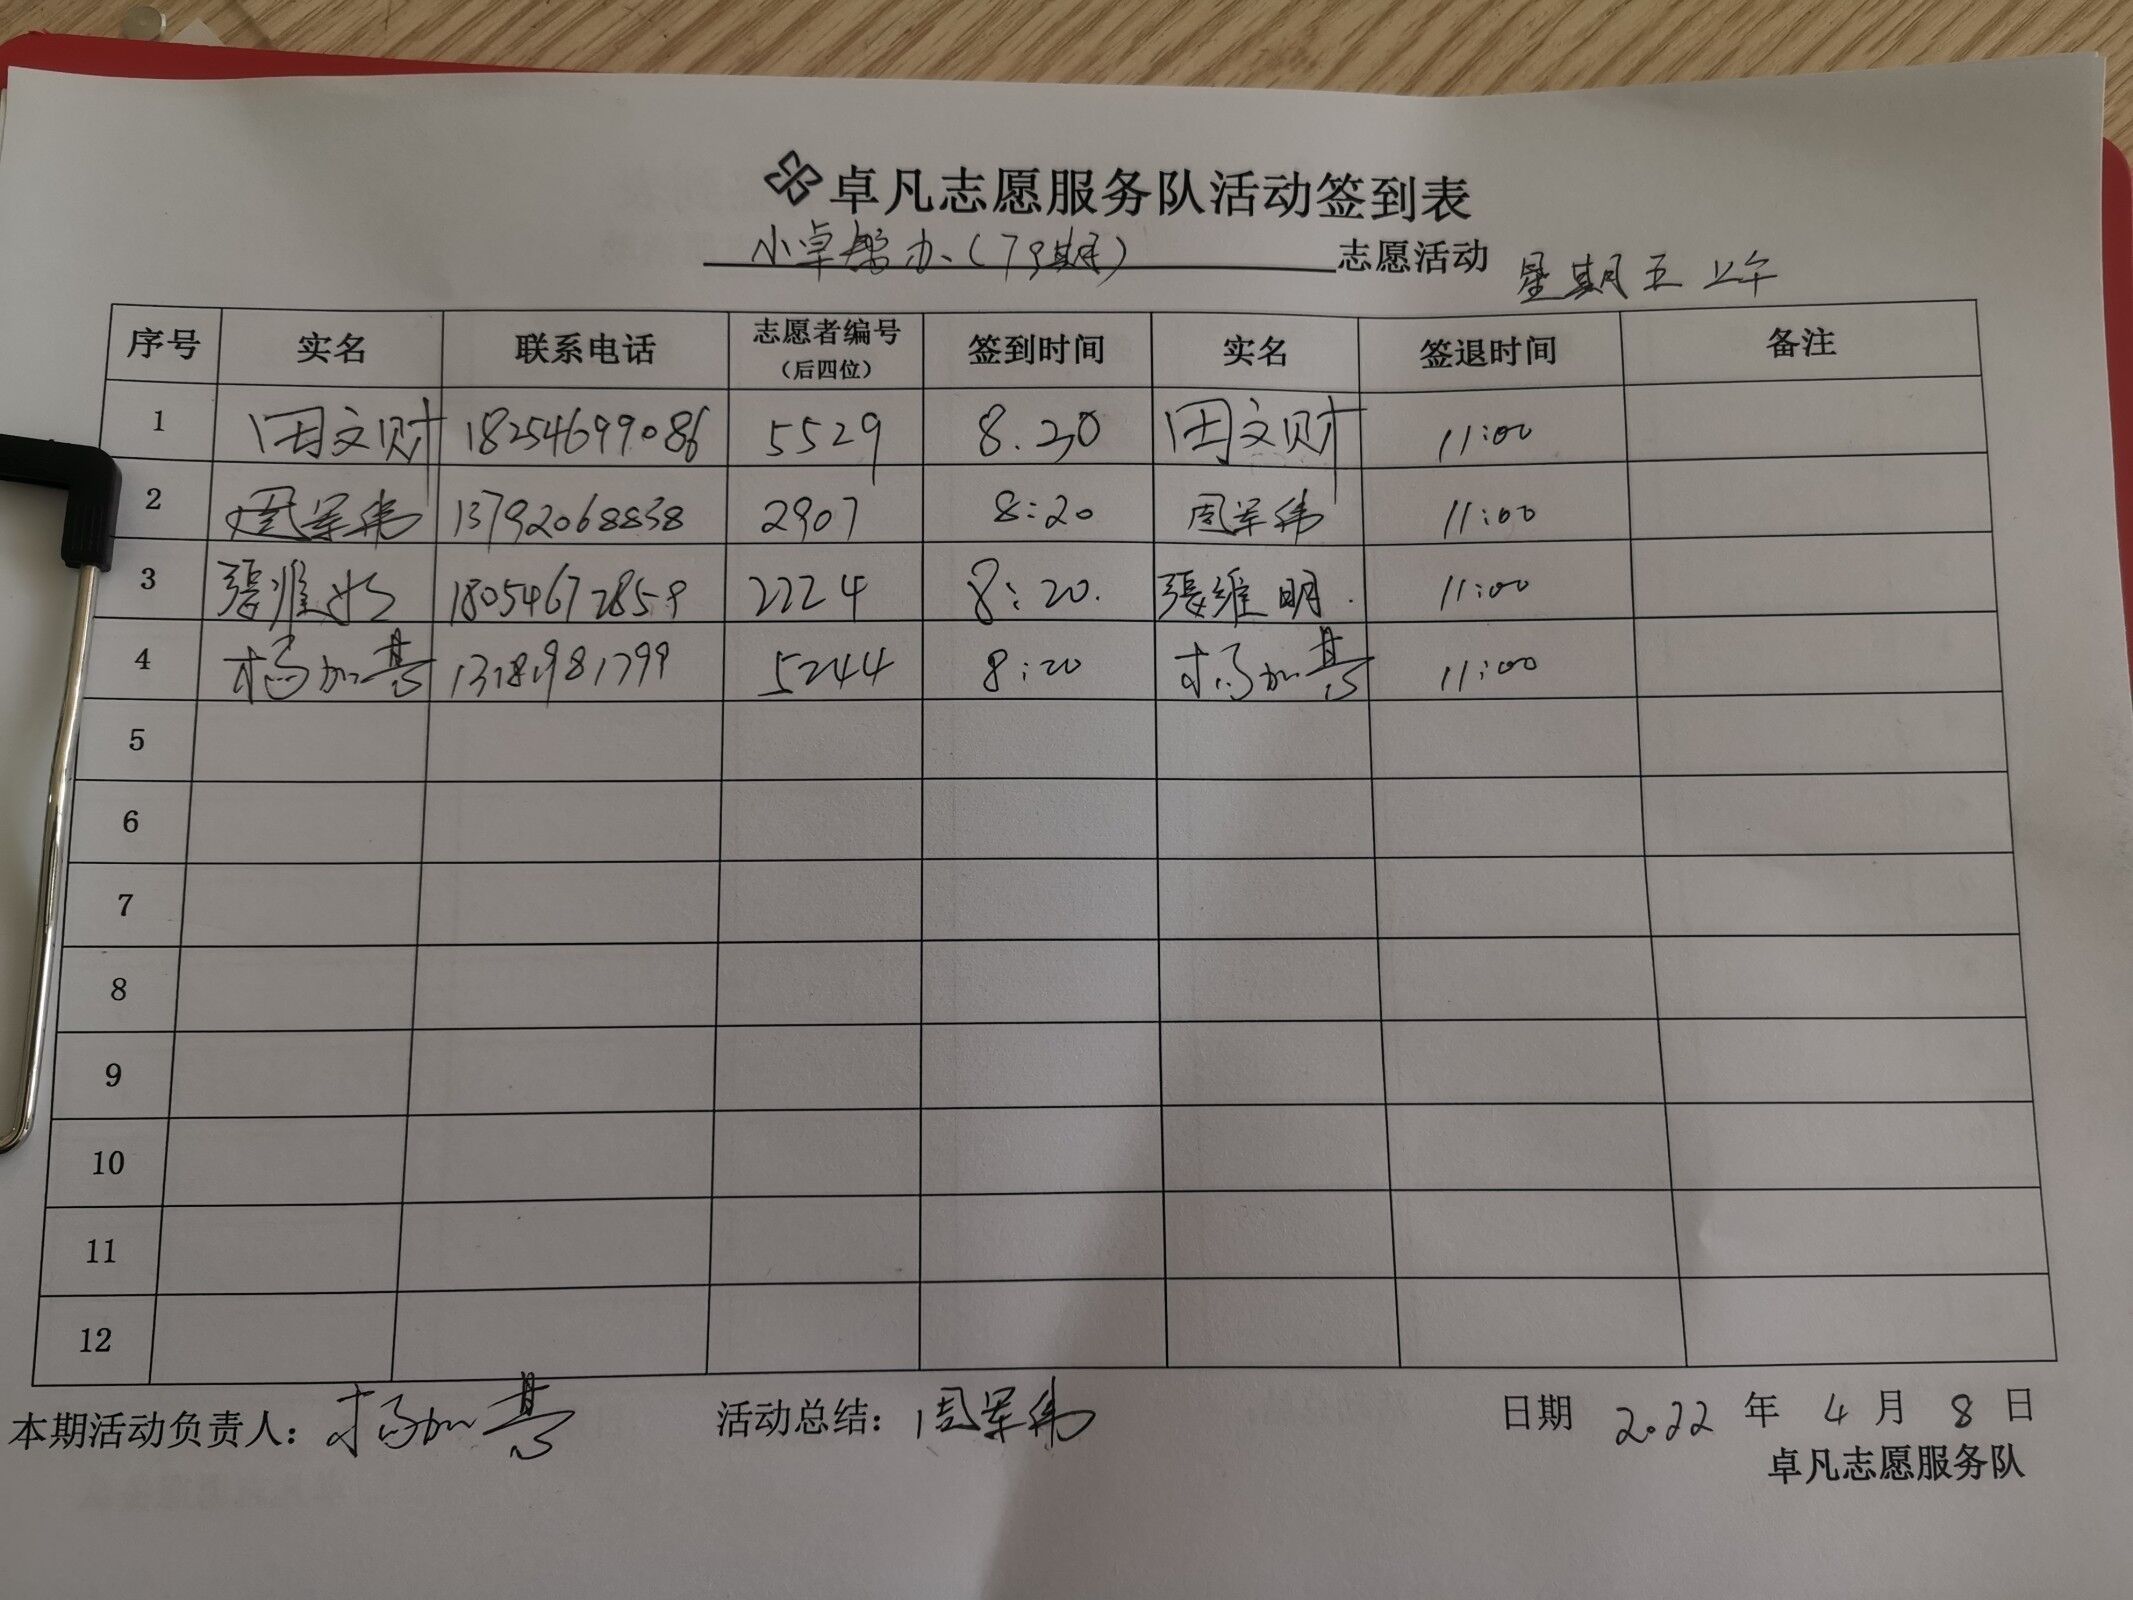 卓凡志愿服务队活动签到表
小卓帮办(79期) 志愿活动 星期五上午
序号 实名 联系电话 志愿者编号(后四位) 签到时间 实名 签退时间 备注
1 田文财 18254699086 5529 8.20 田文财 11:00
2 周军伟 13792068838 2907 8:20 周军伟 11:00
3 張維明 18054672859 2224 8:20. 張維明. 11:00
4 杨加喜 13181981799 5244 8:20 杨加喜 11:00
5
6
7
8
9
10
11
12
本期活动负责人: 杨加喜 活动总结: 周军伟 日期 2022 年 4 月 8 日
卓凡志愿服务队